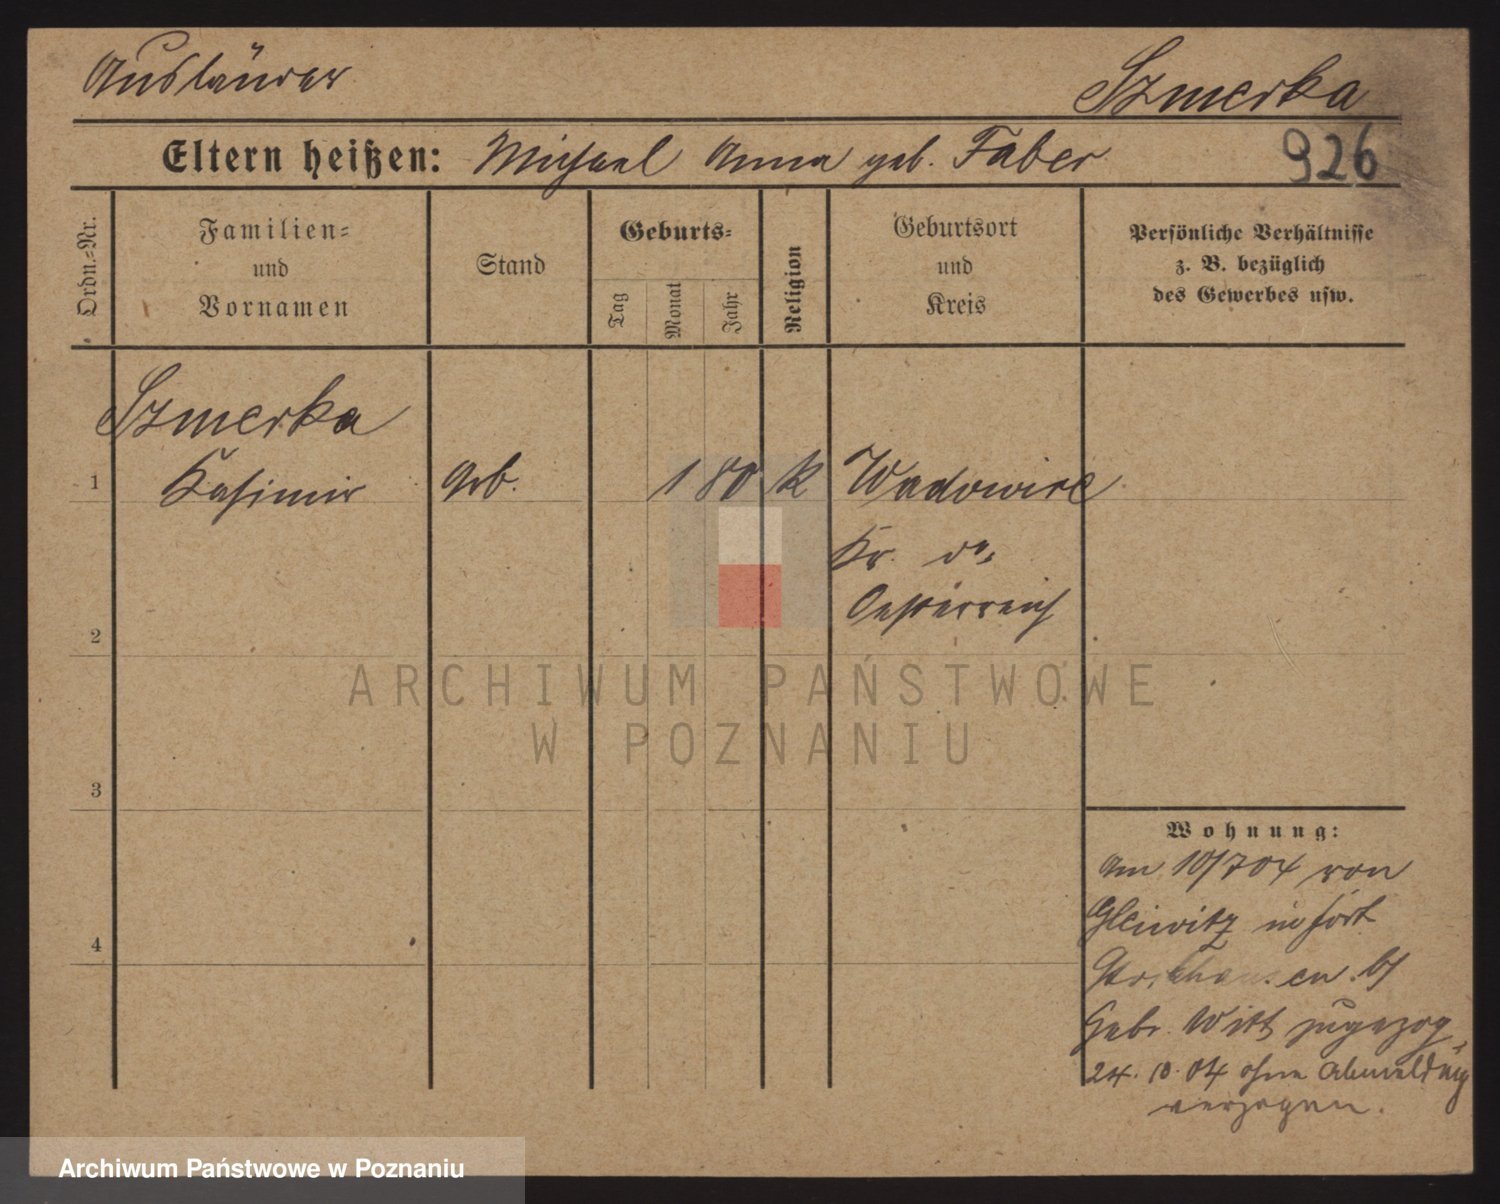 Ausländer
Szmerka
Eltern heißen: Michael Anna geb. Faber
926
Ordn.-Nr.
Familien-
und
Vornamen
Stand
Geburts-
Tag
Monat
Jahr
Religion
Geburtsort
und
Kreis
Persönliche Verhältnisse
z. B. bezüglich
des Gewerbes usw.
Szmerka
1 Kasimir Arb. 1 80 K Wadowice
Kr. do.
Oesterreich
2
3
4
Wohnung:
Am 10/7 04 von
Gleiwitz
Gebr. Witt zugezog.
24. 10. 04 ohne Abmeldung
verzogen.
ARCHIWUM PAŃSTWOWE
W POZNANIU
Archiwum Państwowe w Poznaniu